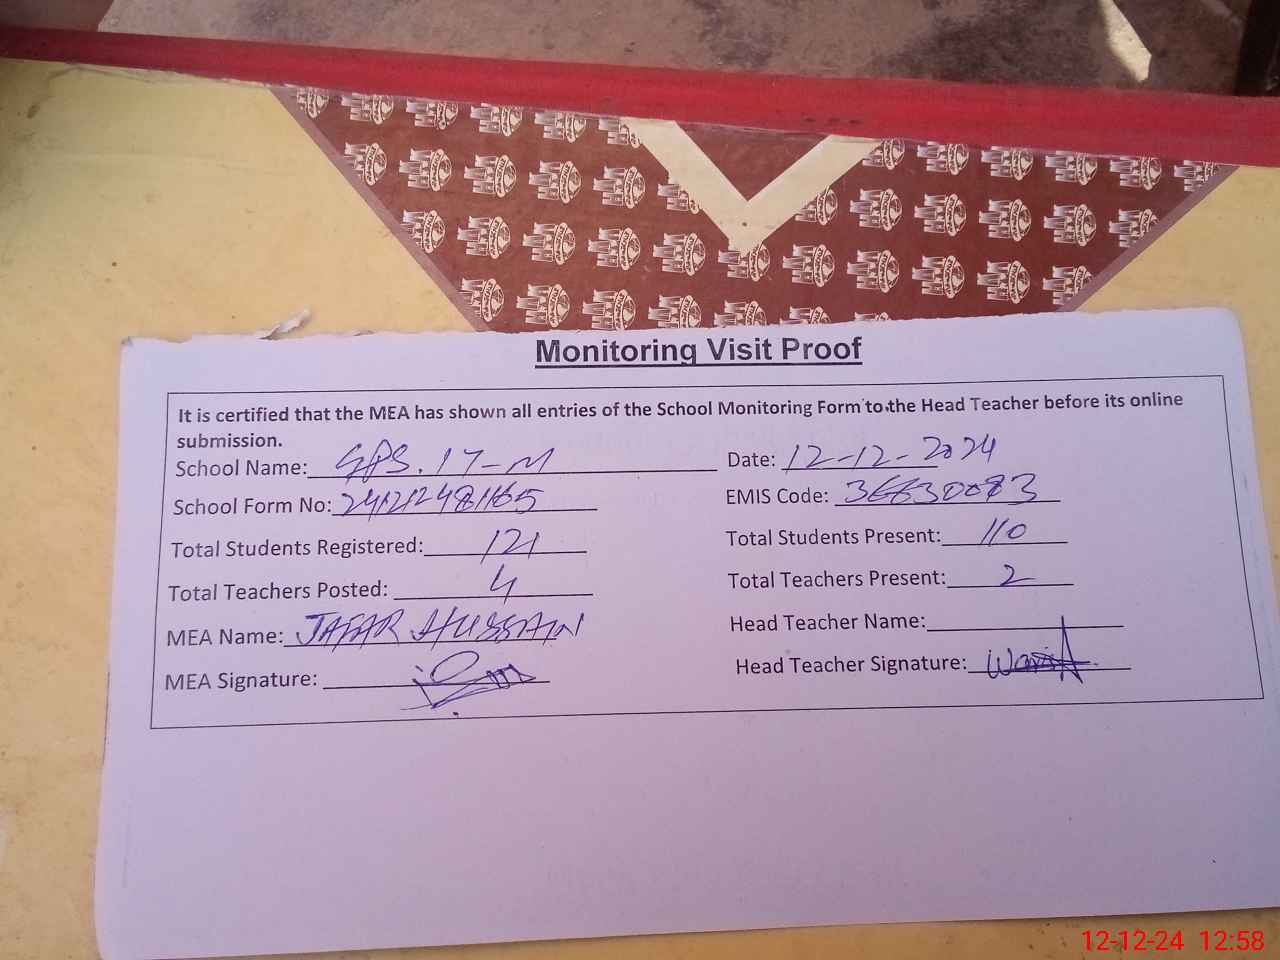 Monitoring Visit Proof
It is certified that the MEA has shown all entries of the School Monitoring Form to the Head Teacher before its online
submission.
School Name: GPS. 17-M Date: 12-12-2024
School Form No: 24121248165 EMIS Code: 36630083
Total Students Registered: 121 Total Students Present: 110
Total Teachers Posted: 4 Total Teachers Present: 2
MEA Name: JAFAR HUSSAIN Head Teacher Name:
MEA Signature: Head Teacher Signature:
12-12-24 12:58